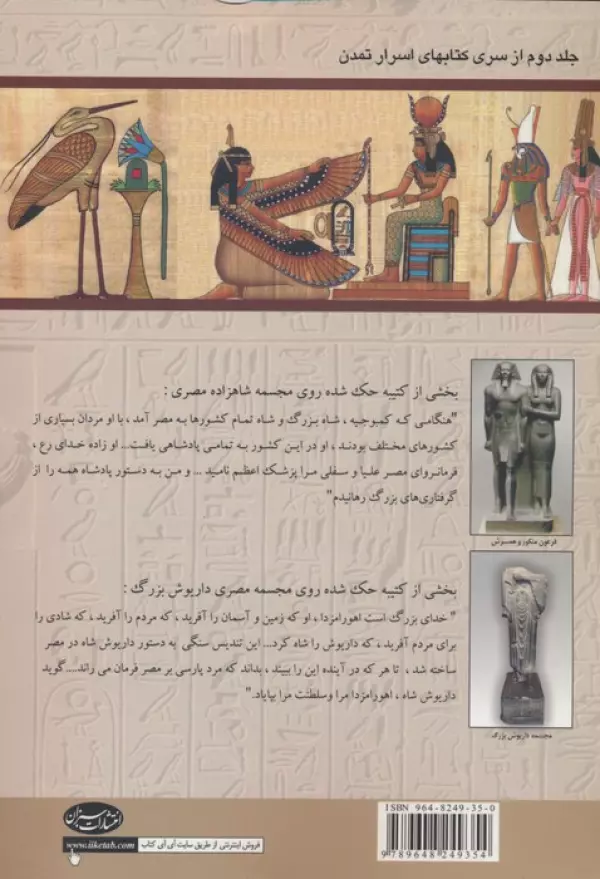 جلد دوم از سری کتابهای اسرار تمدن
بخشی از کتیبه حک شده روی مجسمه شاهزاده مصری :
"هنگامی که کمبوجیه ، شاه بزرگ و شاه تمام کشورها به مصر آمد ، با او مردان بسیاری از
کشورهای مختلف بودند ، او در این کشور به تمامی پادشاهی یافت... او زاده خدای رع ،
فرمانروای مصر علیا و سفلی مرا پزشک اعظم نامید ... و من به دستور پادشاه همه را از
گرفتاری‌های بزرگ رهانیدم"
فرعون منکورو همسرش
بخشی از کتیبه حک شده روی مجسمه مصری داریوش بزرگ :
" خدای بزرگ است اهورامزدا ، او که زمین و آسمان را آفرید ، که مردم را آفرید ، که شادی را
برای مردم آفرید ، که داریوش را شاه کرد... این تندیس سنگی به دستور داریوش شاه در مصر
ساخته شد ، تا هر که در آینده این را ببیند ، بداند که مرد پارسی بر مصر فرمان می راند.....گوید
داریوش شاه ، اهورامزدا مرا وسلطنت مرا بپایاد."
مجسمه داریوش بزرگ
ISBN 964-8249-35-0
9789648249354
انتشارات سبزان
فروش اینترنتی از طریق سایت آی آی کتاب
www.iiketab.com